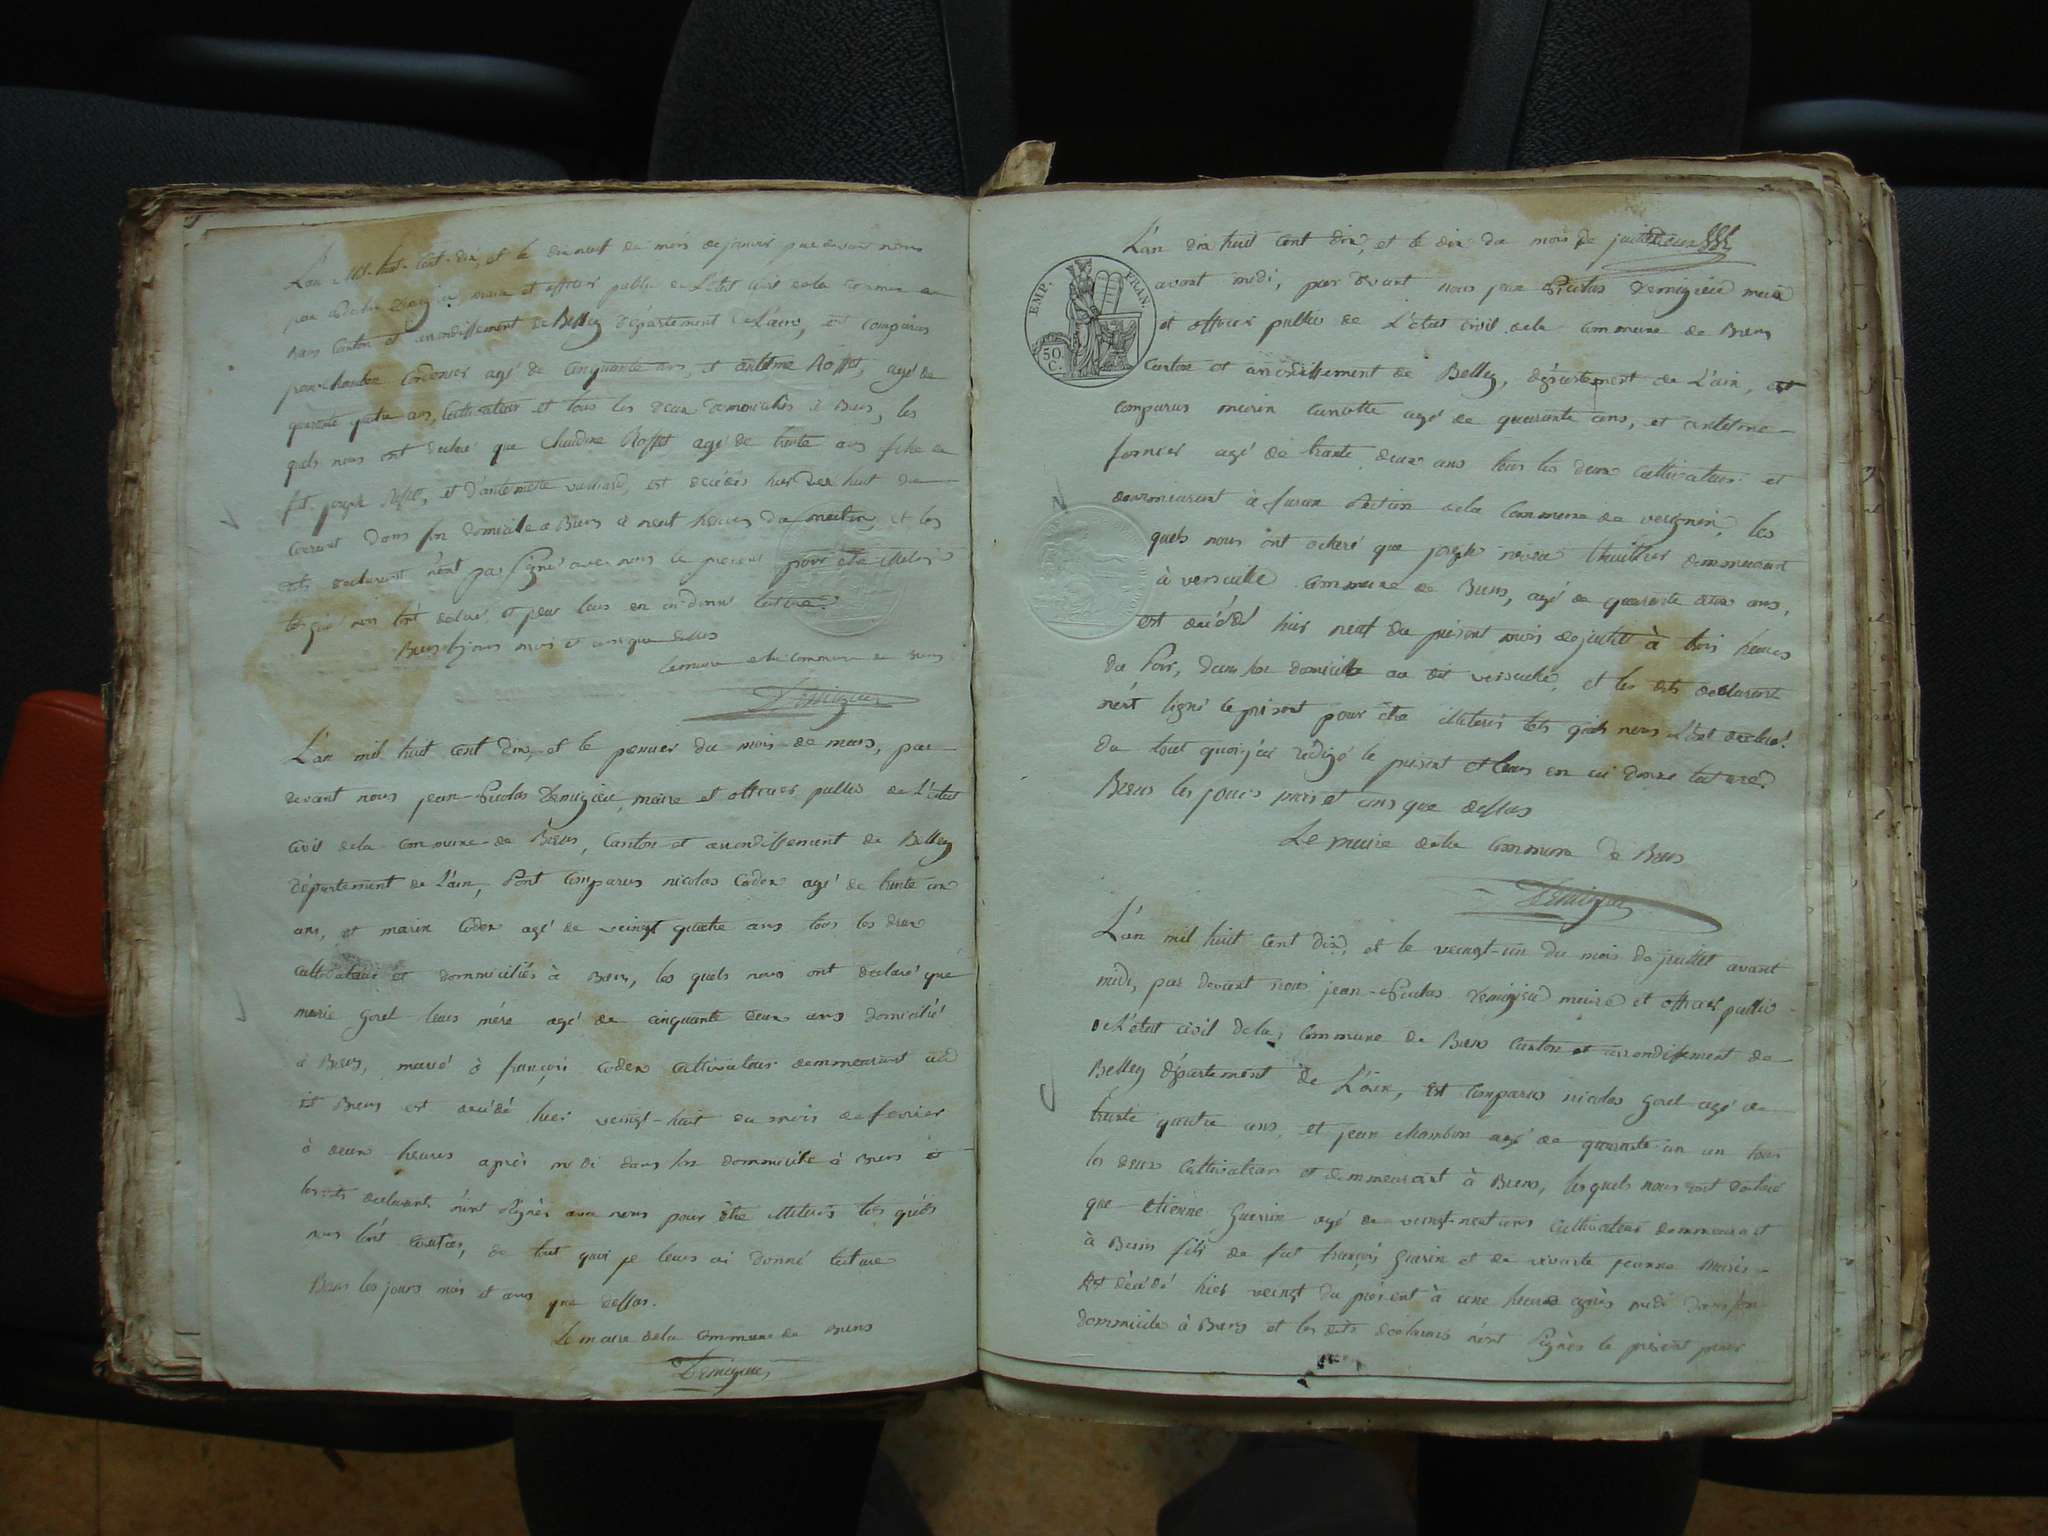 L'an mil huit cent dix, et le dix neuf du mois de janvier par devant nous
jean Nicolas Demigieu maire et officier public de l'état civil de la commune de
Bens canton et arrondissement de Belley département de L'ain, est comparus
jean chambon cordonier agé de cinquante ans, et antelme Rosset, agé de
quarante quatre ans, cultivateur et tous les deux domiciliés à Bens, les
quels nous ont declaré que Claudine Rosset agé de trante ans fille de
fut joseph Rosset, et d'antelmette, est décédés hier dix huit du
courant dans son domicile a Bens à neuf heures du matin, et les
dits declarant n'ont pas signé avec nous le present pour etre illeteré
tels que nous l'ont declaré, et pour tous en ai donné lecture.
Bens les jours mois et ans que dessus
le maire de la commune de Bens
Demigieu
L'an mil huit cent dix, et le premier du mois de mars, par
devant nous jean-Nicolas Demigieu, maire et officier public de L'état
civil de la commune de Bens, canton et arrondissement de Belley
département de L'ain, sont comparus nicolas Coder agé de trante un
ans, et marin Coder agé de veingt quatre ans tous les deux
cultivateur et dommiciliés à Bens, les quels nous ont declaré que
marie Gorel leurs mère agé de cinquante deux ans domicilié
à Bens, marié à françois Coder cultivateur demmeurant au
dit Bens est décédé hier veingt-huit du mois de fevrier
à deux heures après midi dans son dommicile à Bens et
les dits declarant n'ont signés avec nous pour être illeterés tels qu'ils
nous l'ont, de tout quoi je leurs ai donné lecture
Bens les jours mois et ans que dessus.
Le maire de la commune de Bens
Demigieu
EMP. FRAN.
50 C.
L'an dix huit cent dix, et le dix du mois de juillet
avant midi, par devant nous jean Nicolas Demigieu maire
et officier public de L'état civil de la commune de Bens
canton et arrondissement de Belley, département de L'ain, est
comparus marin agé de quarante ans, et antelme
fornier agé de trante deux ans tous les deux cultivateurs et
demmeurant à section de la commune de, les
quels nous ont declaré que joseph demmeurant
à commune de Bens, agé de quarante deux ans,
est décédé hier neuf du présent mois de juillet à trois heures
du soir, dans son domicille au dit, et les dits declarant
n'ont signé le présent pour être illeterés tels qu'ils nous l'ont declaré.
du tout quoi j'ai rédigé le present et leurs en ai donné lecture
Bens les jours mois et ans que dessus
Le maire de la commune de Bens
Demigieu
L'an mil huit cent dix, et le veingt-un du mois de juillet avant
midi, par devant nous jean-Nicolas Demigieu maire et officier public
de L'état civil de la commune de Bens canton et arrondissement de
Belley département de L'ain, est comparus nicolas Gorel agé de
trante quatre ans, et jean chambon agé de quarante un an tous
les deux cultivateurs et demmeurant à Bens, lesquels nous ont declaré
que etienne Guerin agé de veingt-neuf ans cultivateur demmeurant
à Bens fils de fut françois Guerin et de vivante jeanne
est décédé hier veingt du présent à une heure après midi dans son
dommicile à Bens et les dits declarans n'ont signés le présent pour